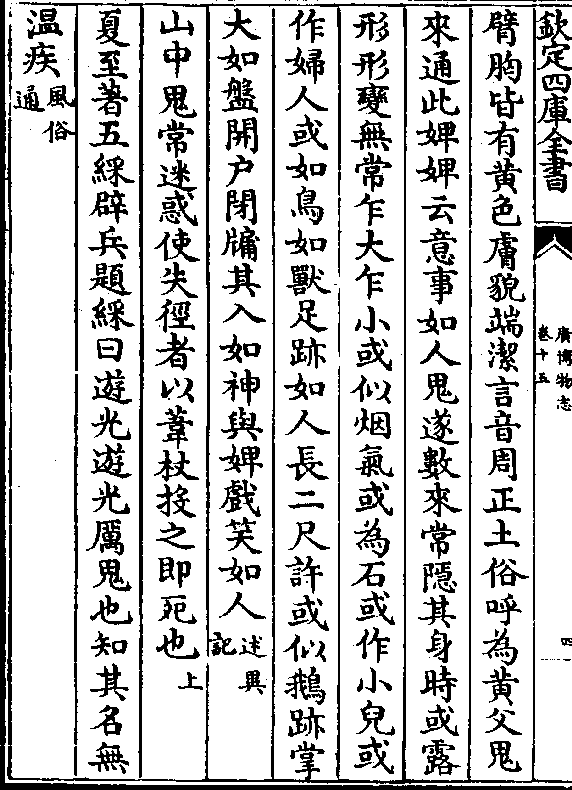 欽定四庫全書
廣博物志
卷十五
四
臂胸皆有黄色膚貌端潔言音周正土俗呼為黄父鬼
來通此婢婢云意事如人鬼遂數來常隱其身時或露
形形變無常乍大乍小或似烟氣或為石或作小兒或
作婦人或如鳥如獸足跡如人長二尺許或似鵝跡掌
大如盤開户閉牖其入如神與婢戲笑如人述異記
山中鬼常迷惑使失徑者以葦杖投之即死也上
夏至著五綵辟兵題綵曰遊光遊光厲鬼也知其名無
温疾風俗通